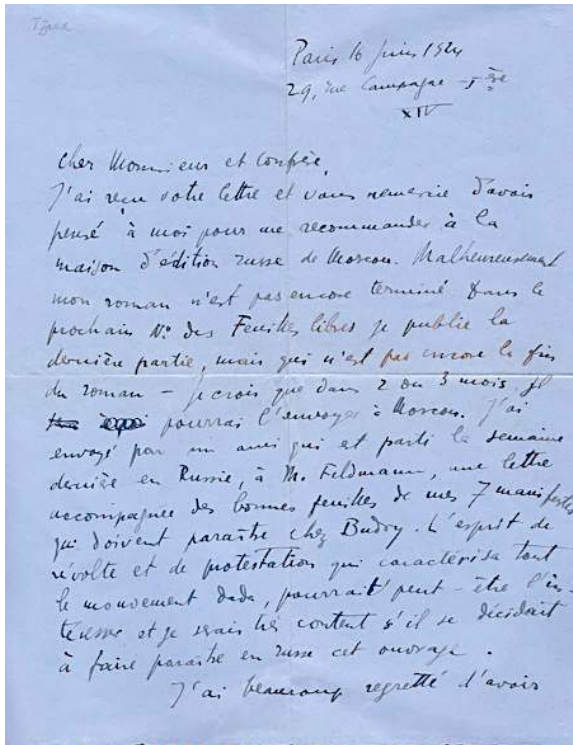 Tzara
Paris 16 juin 1924
29, rue Campagne - 1ère
XIV
Cher Monsieur et Confrère,
J'ai reçu votre lettre et vous remercie d'avoir
pensé à moi pour me recommander à la
maison d'édition russe de Moscou. Malheureusement
mon roman n'est pas encore terminé Dans le
prochain No. des Feuilles libres je publie la
dernière partie, mais qui n'est pas encore la fin
du roman – je crois que dans 2 ou 3 mois je
pourrai l'envoyer à Moscou. J'ai
envoyé par un ami qui est parti la semaine
dernière en Russie, à M. Feldmann, une lettre
accompagnée des bonnes feuilles de mes 7 manifestes
qui doivent paraître chez Budry. L'esprit de
révolte et de protestation qui caractérisa tout
le mouvement dada, pourrait peut-être l'in-
téresser et je serais très content s'il se décidait
à faire paraître en russe cet ouvrage.
J'ai beaucoup regretté d'avoir